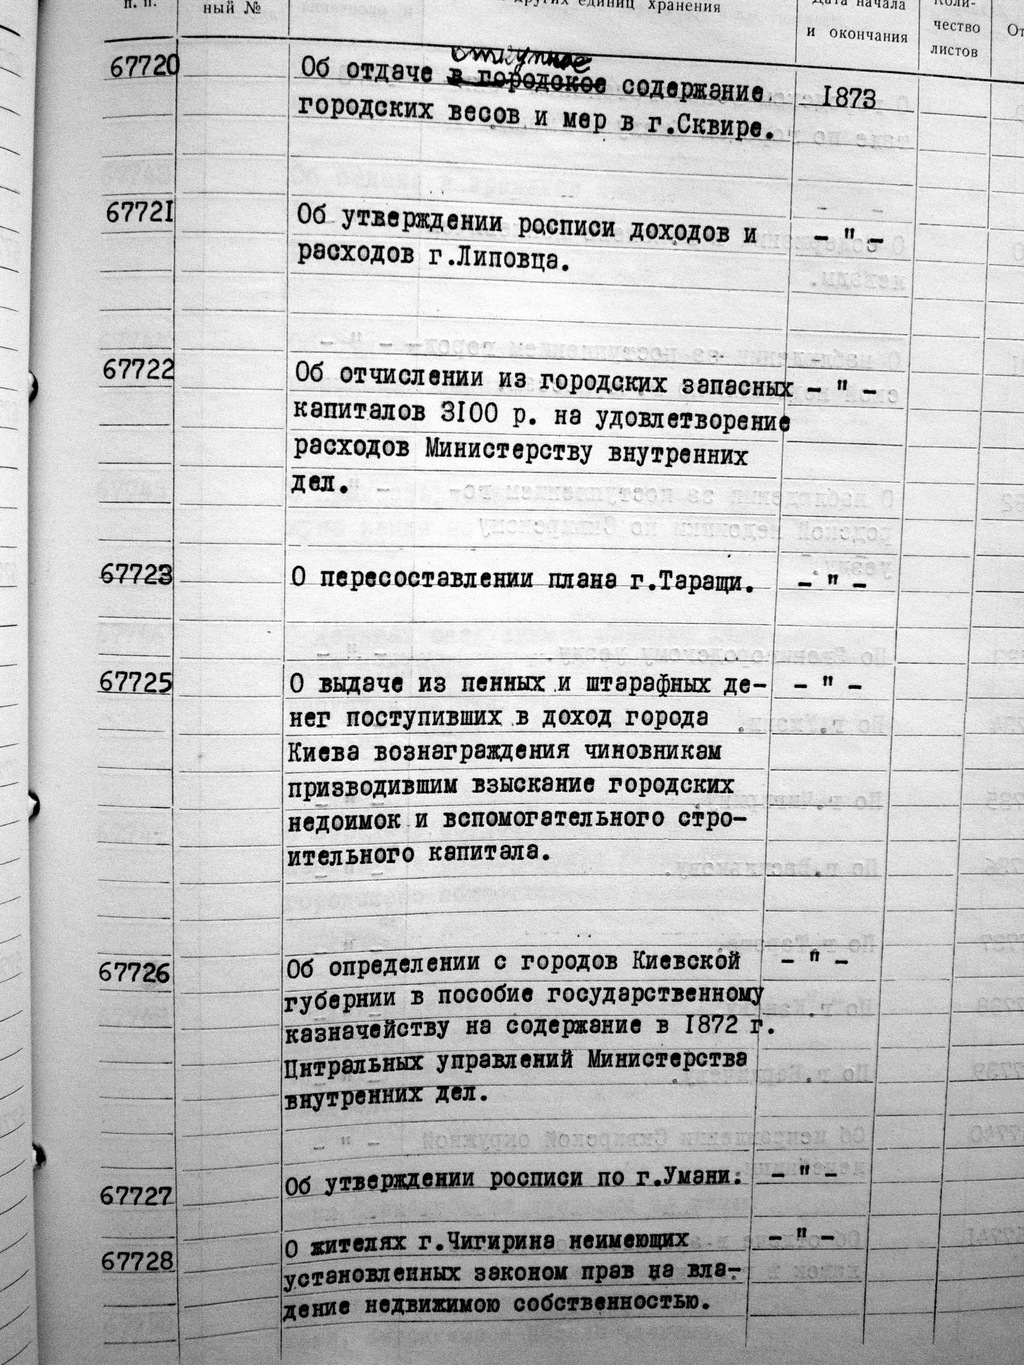 п. п.
ный №
других единиц хранения
Дата начала
и окончания
Коли-
чество
листов
От
67720
откупное
Об отдаче в городское содержание 1873
городских весов и мер в г.Сквире.
67721
Об утверждении росписи доходов и – " –
расходов г.Липовца.
67722
Об отчислении из городских запасных – " –
капиталов 3100 р. на удовлетворение
расходов Министерству внутренних
дел.
67723 О пересоставлении плана г.Таращи. – " –
67725 О выдаче из пенных и штарафных де- – " –
нег поступивших в доход города
Киева вознаграждения чиновникам
призводившим взыскание городских
недоимок и вспомогательного стро-
ительного капитала.
67726 Об определении с городов Киевской – " –
губернии в пособие государственному
казначейству на содержание в 1872 г.
Цнтральных управлений Министерства
внутренних дел.
67727 Об утверждении росписи по г.Умани. – " –
67728 О жителях г.Чигирина неимеющих – " –
установленных законом прав на вла-
дение недвижимою собственностью.